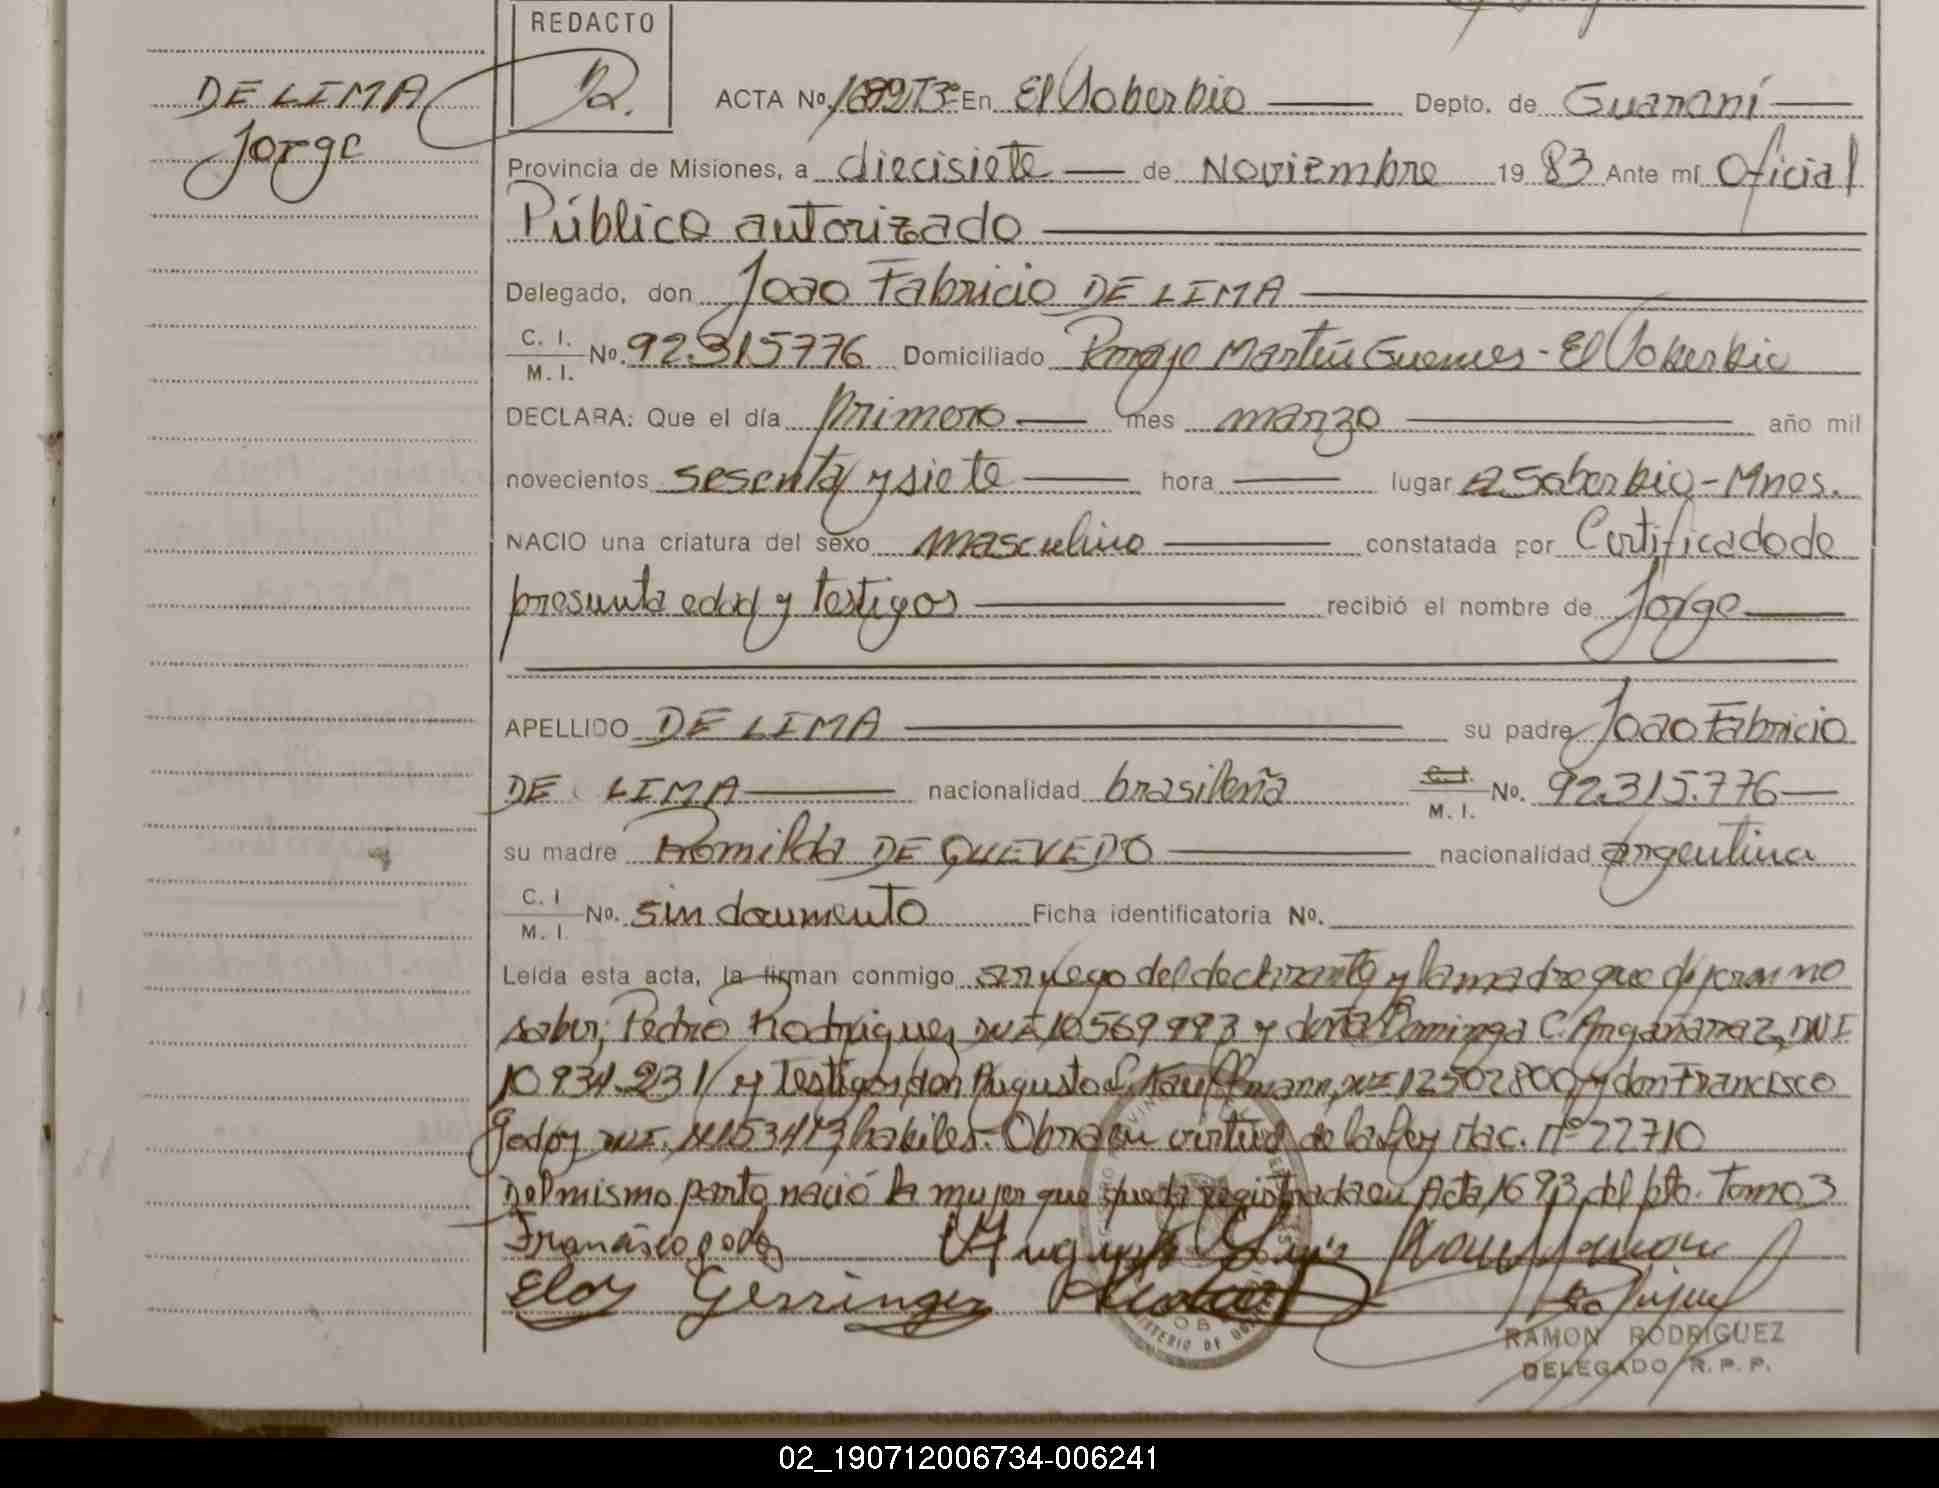 REDACTO
DE LIMA
Jorge
ACTA Nº 1692 T3º En El Soberbio Depto. de Guaraní
Provincia de Misiones, a diecisiete de Noviembre 1983 Ante mí Oficial
Público autorizado
Delegado, don Joao Fabricio DE LIMA
C. I.
M. I. No. 92.315776 Domiciliado Martín Guemes - El Soberbio
DECLARA: Que el día primero mes marzo año mil
novecientos sesenta y siete hora lugar El Soberbio - Mnes.
NACIO una criatura del sexo masculino constatada por Certificado de
presunta edad y testigos recibió el nombre de Jorge
APELLIDO DE LIMA su padre Joao Fabricio
DE LIMA nacionalidad brasileña C. I. M. I. No. 92.315.776
su madre Romilda DE QUEVEDO nacionalidad argentina
C. I
M. I. No. sin documento Ficha identificatoria No.
Leída esta acta, la firman conmigo a ruego del declarante y la madre que dijeron no
saber; Pedro Rodriguez, DNI 10569993 y doña Dominga C. Argañaraz, DNI
10934231 y testigos don Augusto L. Kauffmann, DNI 12502800 y don Francisco
Godoy DNI. hábiles. Obra en virtud de la Ley Nac. nº 22710
Del mismo parto nació la mujer que queda registrada en Acta 1693 del pto. Tomo 3
Francisco godoy Augusto Luis
Eloy Gerringer
RAMON RODRIGUEZ
DELEGADO R. P. P.
02_190712006734-006241